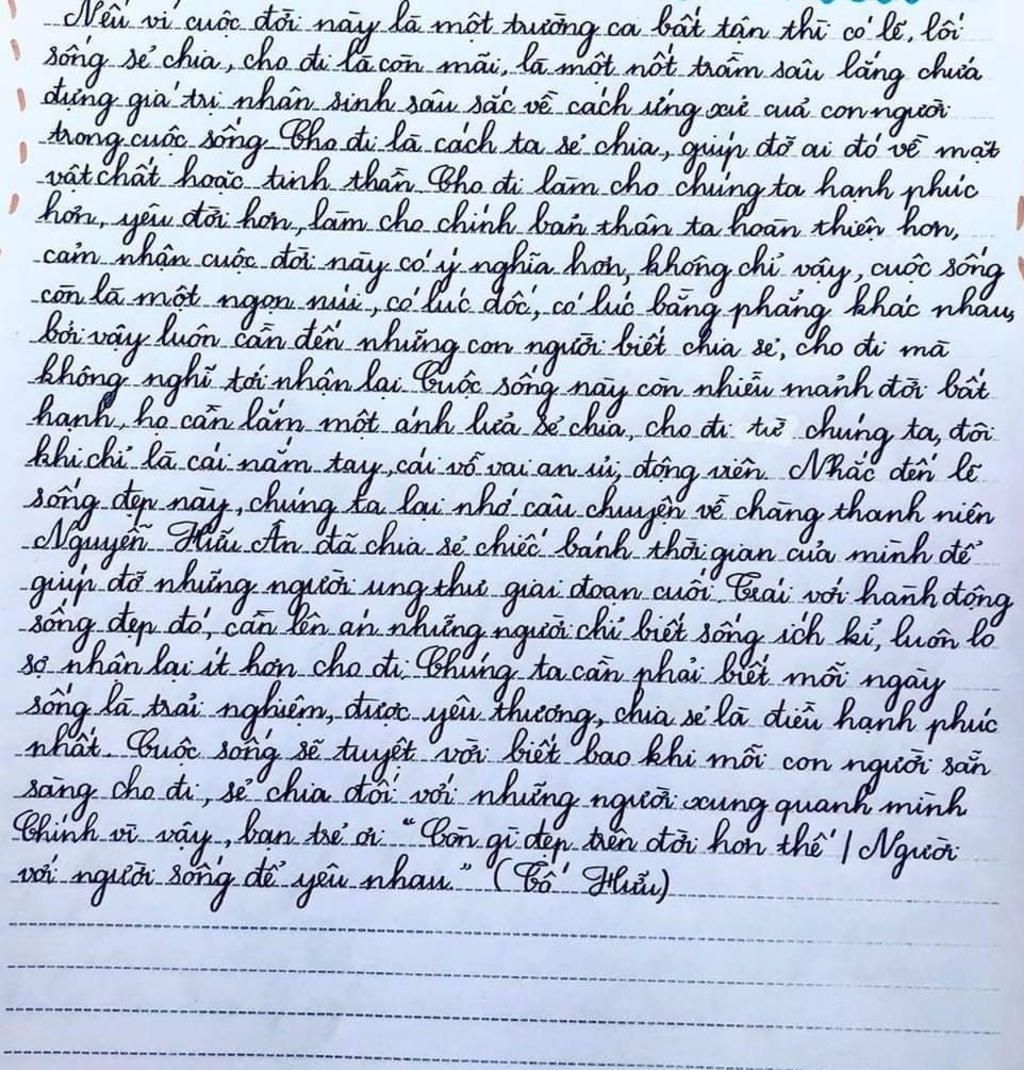 Nếu ví cuộc đời này là một trường ca bất tận thì có lẽ, lối
sống sẻ chia, cho đi là còn mãi, là một nốt trầm sâu lắng chứa
đựng giá trị nhân sinh sâu sắc về cách ứng xử của con người
trong cuộc sống. Cho đi là cách ta sẻ chia, giúp đỡ ai đó về mặt
vật chất hoặc tinh thần. Cho đi làm cho chúng ta hạnh phúc
hơn, yêu đời hơn, làm cho chính bản thân ta hoàn thiện hơn,
cảm nhận cuộc đời này có ý nghĩa hơn, không chỉ vậy, cuộc sống
còn là một ngọn núi, có lúc dốc, có lúc bằng phẳng khác nhau,
bởi vậy luôn cần đến những con người biết chia sẻ, cho đi mà
không nghĩ tới nhận lại. Cuộc sống này còn nhiều mảnh đời bất
hạnh, họ cần lắm một ánh lửa sẻ chia, cho đi từ chúng ta, đôi
khi chỉ là cái nắm tay, cái vỗ vai an ủi, động viên. Nhắc đến lẽ
sống đẹp này, chúng ta lại nhớ câu chuyện về chàng thanh niên
Nguyễn Hữu Ân đã chia sẻ chiếc bánh thời gian của mình để
giúp đỡ những người ung thư giai đoạn cuối. Trái với hành động
sống đẹp đó, cần lên án những người chỉ biết sống ích kỉ, luôn lo
sợ nhận lại ít hơn cho đi. Chúng ta cần phải biết mỗi ngày
sống là trải nghiệm, được yêu thương, chia sẻ là điều hạnh phúc
nhất. Cuộc sống sẽ tuyệt vời biết bao khi mỗi con người sẵn
sàng cho đi, sẻ chia đối với những người xung quanh mình.
Chính vì vậy, bạn trẻ ơi "Còn gì đẹp trên đời hơn thế / Người
với người sống để yêu nhau" (Tố Hữu)